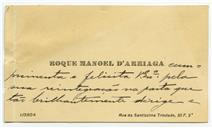 ROQUE MANOEL D'ARRIAGA cum-
primenta e felicita V. Exª. pela
sua reintegração na pasta que
tão brilhantemente dirige e
LISBOA
Rua da Santissima Trindade, 30 F. 3º